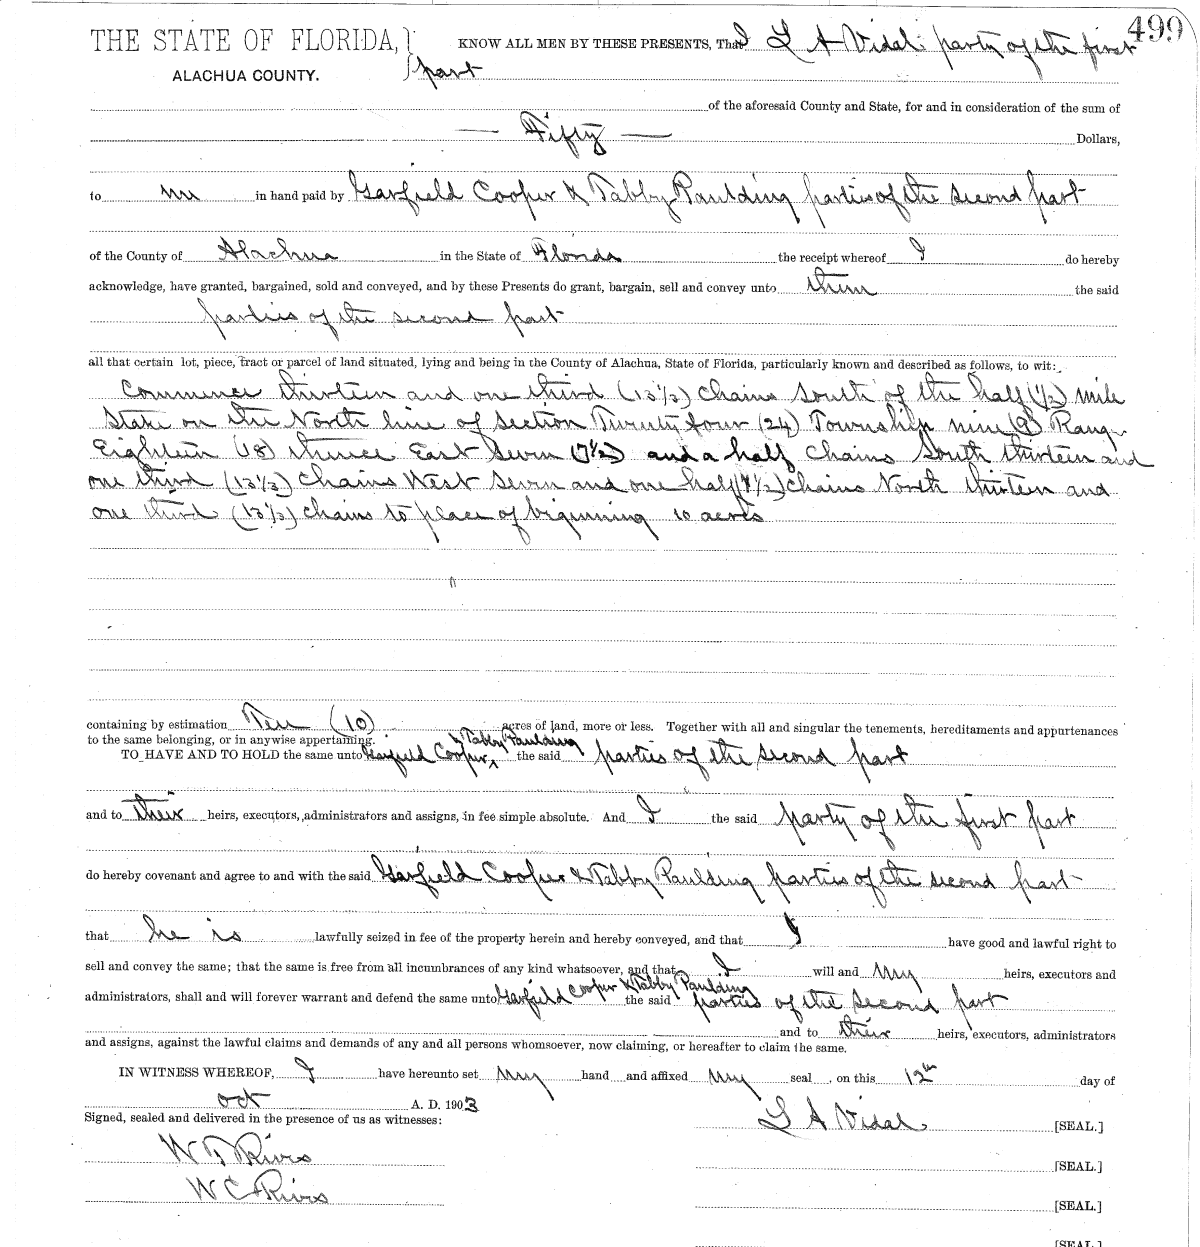 499
THE STATE OF FLORIDA, } KNOW ALL MEN BY THESE PRESENTS, That I L A Vidal party of the first
ALACHUA COUNTY. part
of the aforesaid County and State, for and in consideration of the sum of
— Fifty — Dollars,
to me in hand paid by Garfield Cooper & Tabby Paulding parties of the second part
of the County of Alachua in the State of Florida the receipt whereof I do hereby
acknowledge, have granted, bargained, sold and conveyed, and by these Presents do grant, bargain, sell and convey unto them the said
parties of the second part
all that certain lot, piece, tract or parcel of land situated, lying and being in the County of Alachua, State of Florida, particularly known and described as follows, to wit:
Commence thirteen and one third (13⅓) chains South of the half (½) mile
Stake on the North line of section Twenty four (24) Township nine (9) Range
Eighteen (18) thence East Seven (7½) and a half chains South thirteen and
one third (13⅓) chains West Seven and one half (7½) chains North thirteen and
one third (13⅓) chains to place of beginning 10 acres
containing by estimation Ten (10) acres of land, more or less. Together with all and singular the tenements, hereditaments and appurtenances
to the same belonging, or in anywise appertaining.
TO HAVE AND TO HOLD the same unto Garfield Cooper & Tabby Paulding the said parties of the second part
and to their heirs, executors, administrators and assigns, in fee simple absolute. And I the said party of the first part
do hereby covenant and agree to and with the said Garfield Cooper & Tabby Paulding parties of the second part
that he is lawfully seized in fee of the property herein and hereby conveyed, and that I have good and lawful right to
sell and convey the same; that the same is free from all incumbrances of any kind whatsoever, and that I will and my heirs, executors and
administrators, shall and will forever warrant and defend the same unto Garfield Cooper & Tabby Paulding the said parties of the second part
and to their heirs, executors, administrators
and assigns, against the lawful claims and demands of any and all persons whomsoever, now claiming, or hereafter to claim the same.
IN WITNESS WHEREOF, I have hereunto set my hand and affixed my seal on this 12th day of
Oct A. D. 1903
Signed, sealed and delivered in the presence of us as witnesses: L A Vidal [SEAL.]
W Rivers [SEAL.]
W C Rivers [SEAL.]
[SEAL.]